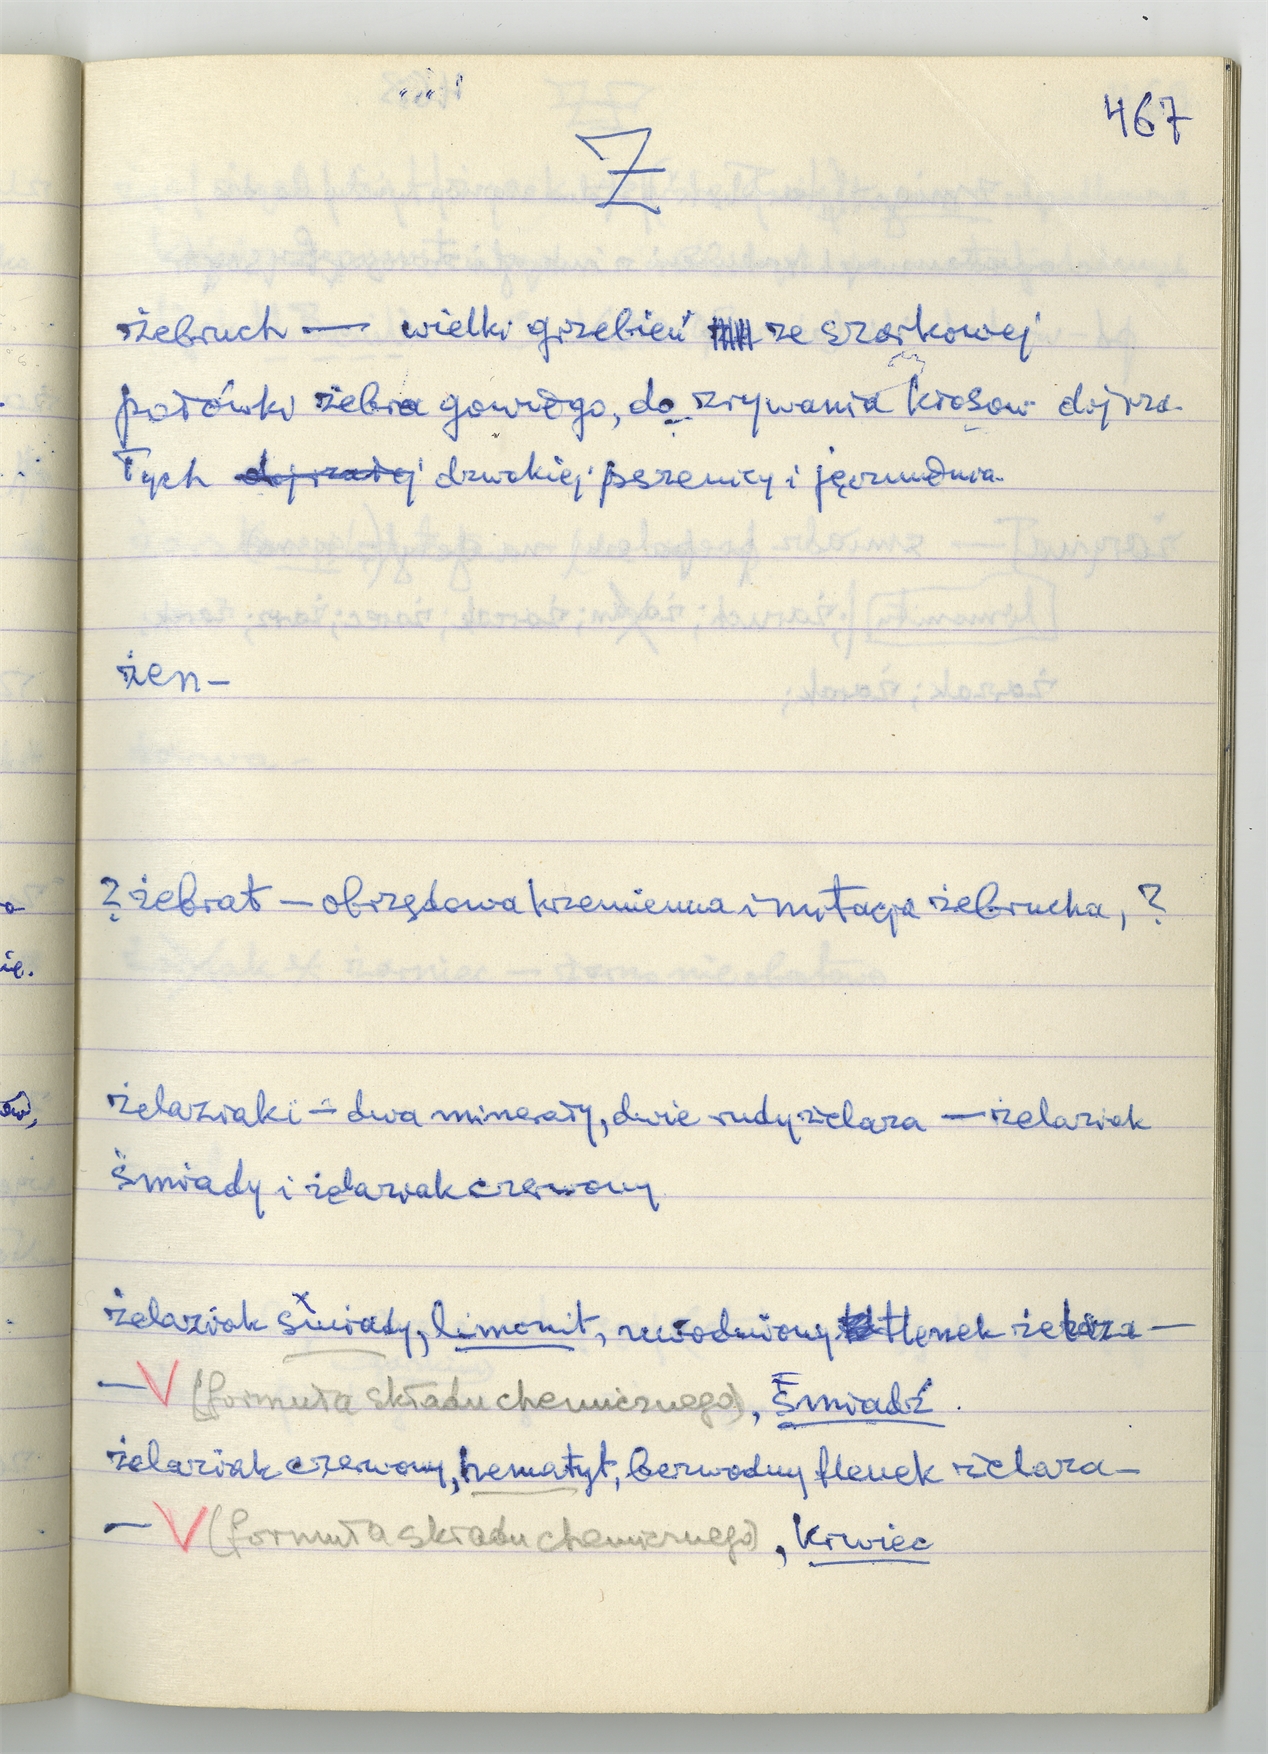 467
Ż
żebruch — wielki grzebień ze szczękowej
połówki żebra gowiego, do zrywania kłosów dojrza-
łych dojrzałej dzikiej pszenicy i jęczmienia
żen-
? żebrat — obrzędowa krzemienna imitacja żebrucha, ?
żelaziaki — dwa minerały, dwie rudy żelaza — żelaziak
śmiady i żelaziak czerwony
żelaziak śmiady, limonit, uwodniony tlenek żelaza —
— V (formuła składu chemicznego), Śmiadź.
żelaziak czerwony, hematyt, bezwodny tlenek żelaza —
— V (formuła składu chemicznego), krwiec